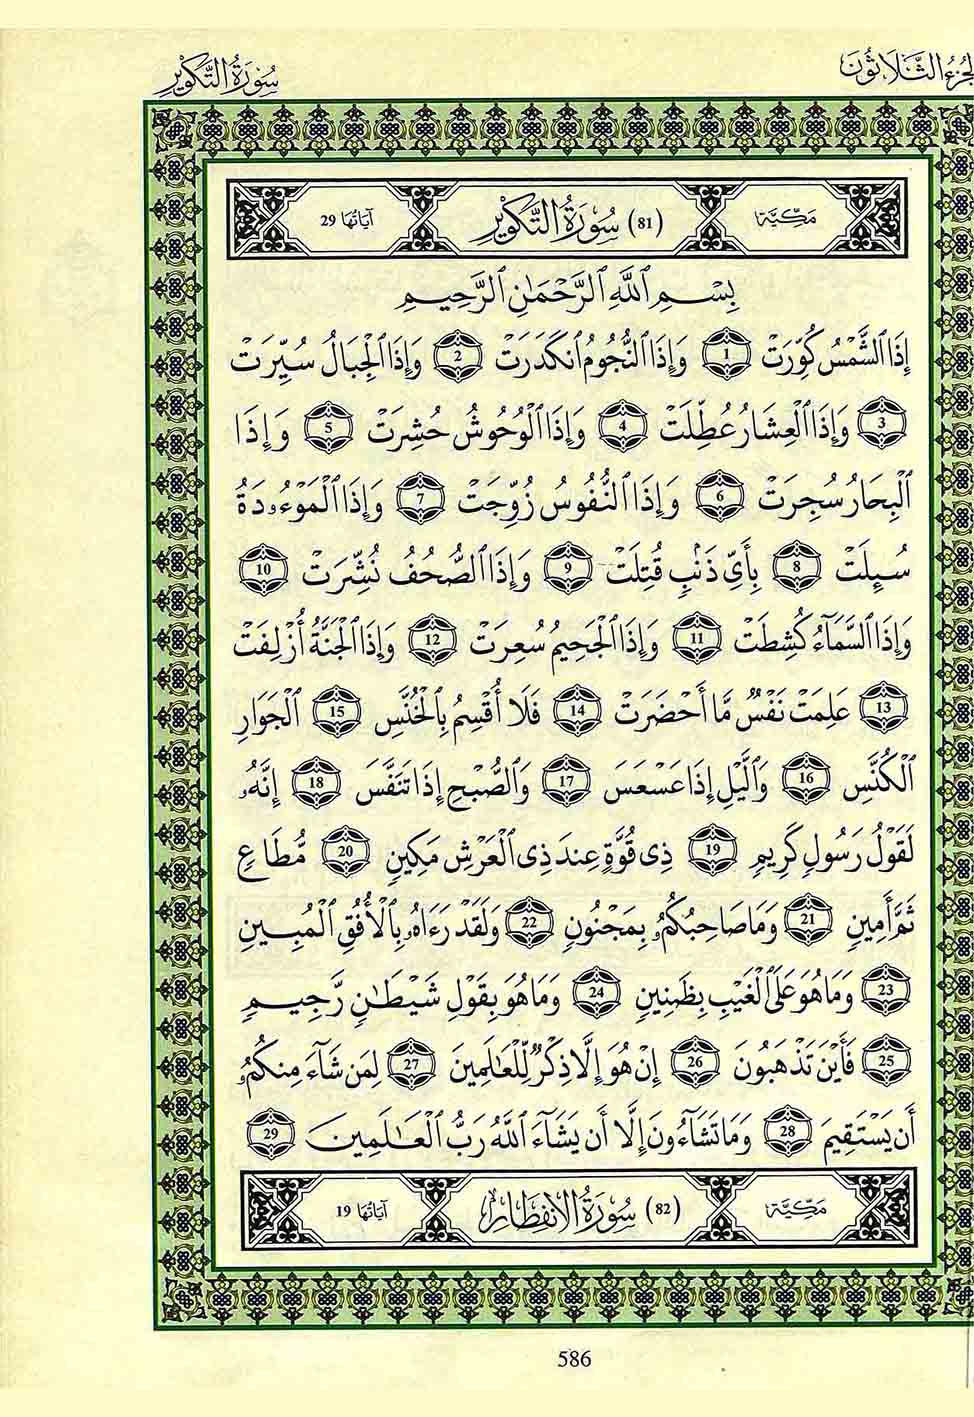 لجُزءُ الثَّلَاثُونَ
سُورَةُ التَّكْوِيرِ
مَكِّيَّة (81) سُورَةُ التَّكْوِيرِ آيَاتُهَا 29
بِسْمِ ٱللَّهِ ٱلرَّحْمَٰنِ ٱلرَّحِيمِ
إِذَا ٱلشَّمْسُ كُوِّرَتْ 1 وَإِذَا ٱلنُّجُومُ ٱنكَدَرَتْ 2 وَإِذَا ٱلْجِبَالُ سُيِّرَتْ
3 وَإِذَا ٱلْعِشَارُ عُطِّلَتْ 4 وَإِذَا ٱلْوُحُوشُ حُشِرَتْ 5 وَإِذَا
ٱلْبِحَارُ سُجِرَتْ 6 وَإِذَا ٱلنُّفُوسُ زُوِّجَتْ 7 وَإِذَا ٱلْمَوْءُۥدَةُ
سُئِلَتْ 8 بِأَيِّ ذَنۢبٍ قُتِلَتْ 9 وَإِذَا ٱلصُّحُفُ نُشِّرَتْ 10
وَإِذَا ٱلسَّمَآءُ كُشِطَتْ 11 وَإِذَا ٱلْجَحِيمُ سُعِرَتْ 12 وَإِذَا ٱلْجَنَّةُ أُزْلِفَتْ
13 عَلِمَتْ نَفْسٌ مَّا أَحْضَرَتْ 14 فَلَا أُقْسِمُ بِٱلْخُنَّسِ 15 ٱلْجَوَارِ
ٱلْكُنَّسِ 16 وَٱلَّيْلِ إِذَا عَسْعَسَ 17 وَٱلصُّبْحِ إِذَا تَنَفَّسَ 18 إِنَّهُۥ
لَقَوْلُ رَسُولٍ كَرِيمٍ 19 ذِي قُوَّةٍ عِندَ ذِي ٱلْعَرْشِ مَكِينٍ 20 مُّطَاعٍ
ثَمَّ أَمِينٍ 21 وَمَا صَاحِبُكُمُۥ بِمَجْنُونٍ 22 وَلَقَدْ رَءَاهُۥ بِٱلْأُفُقِ ٱلْمُبِينِ
23 وَمَا هُوَ عَلَى ٱلْغَيْبِ بِظَنِينٍ 24 وَمَا هُوَ بِقَوْلِ شَيْطَٰنٍ رَّجِيمٍ
25 فَأَيْنَ تَذْهَبُونَ 26 إِنْ هُوَ إِلَّا ذِكْرٌ لِّلْعَٰلَمِينَ 27 لِمَن شَآءَ مِنكُمُۥ
أَن يَسْتَقِيمَ 28 وَمَا تَشَآءُونَ إِلَّا أَن يَشَآءَ ٱللَّهُ رَبُّ ٱلْعَٰلَمِينَ 29
مَكِّيَّة (82) سُورَةُ الِانفِطَارِ آيَاتُهَا 19
586